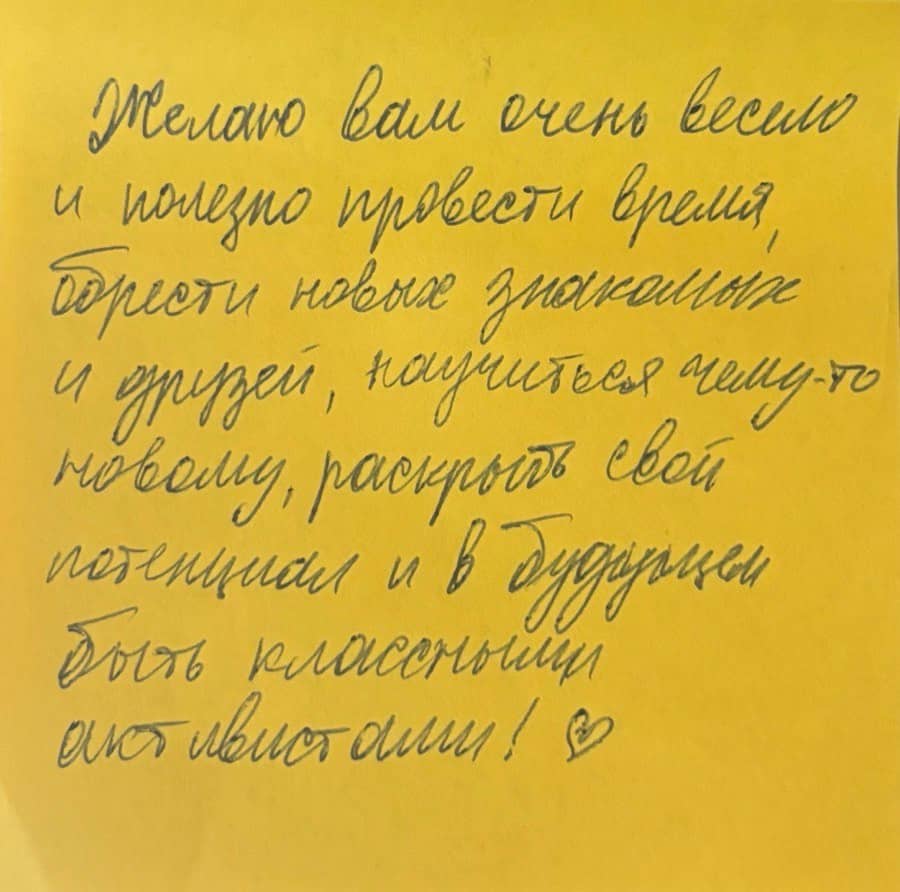 Желаю вам очень весело
и полезно провести время,
обрести новых знакомых
и друзей, научиться чему-то
новому, раскрыть свой
потенциал и в будующем
быть классными
активистами! ♡